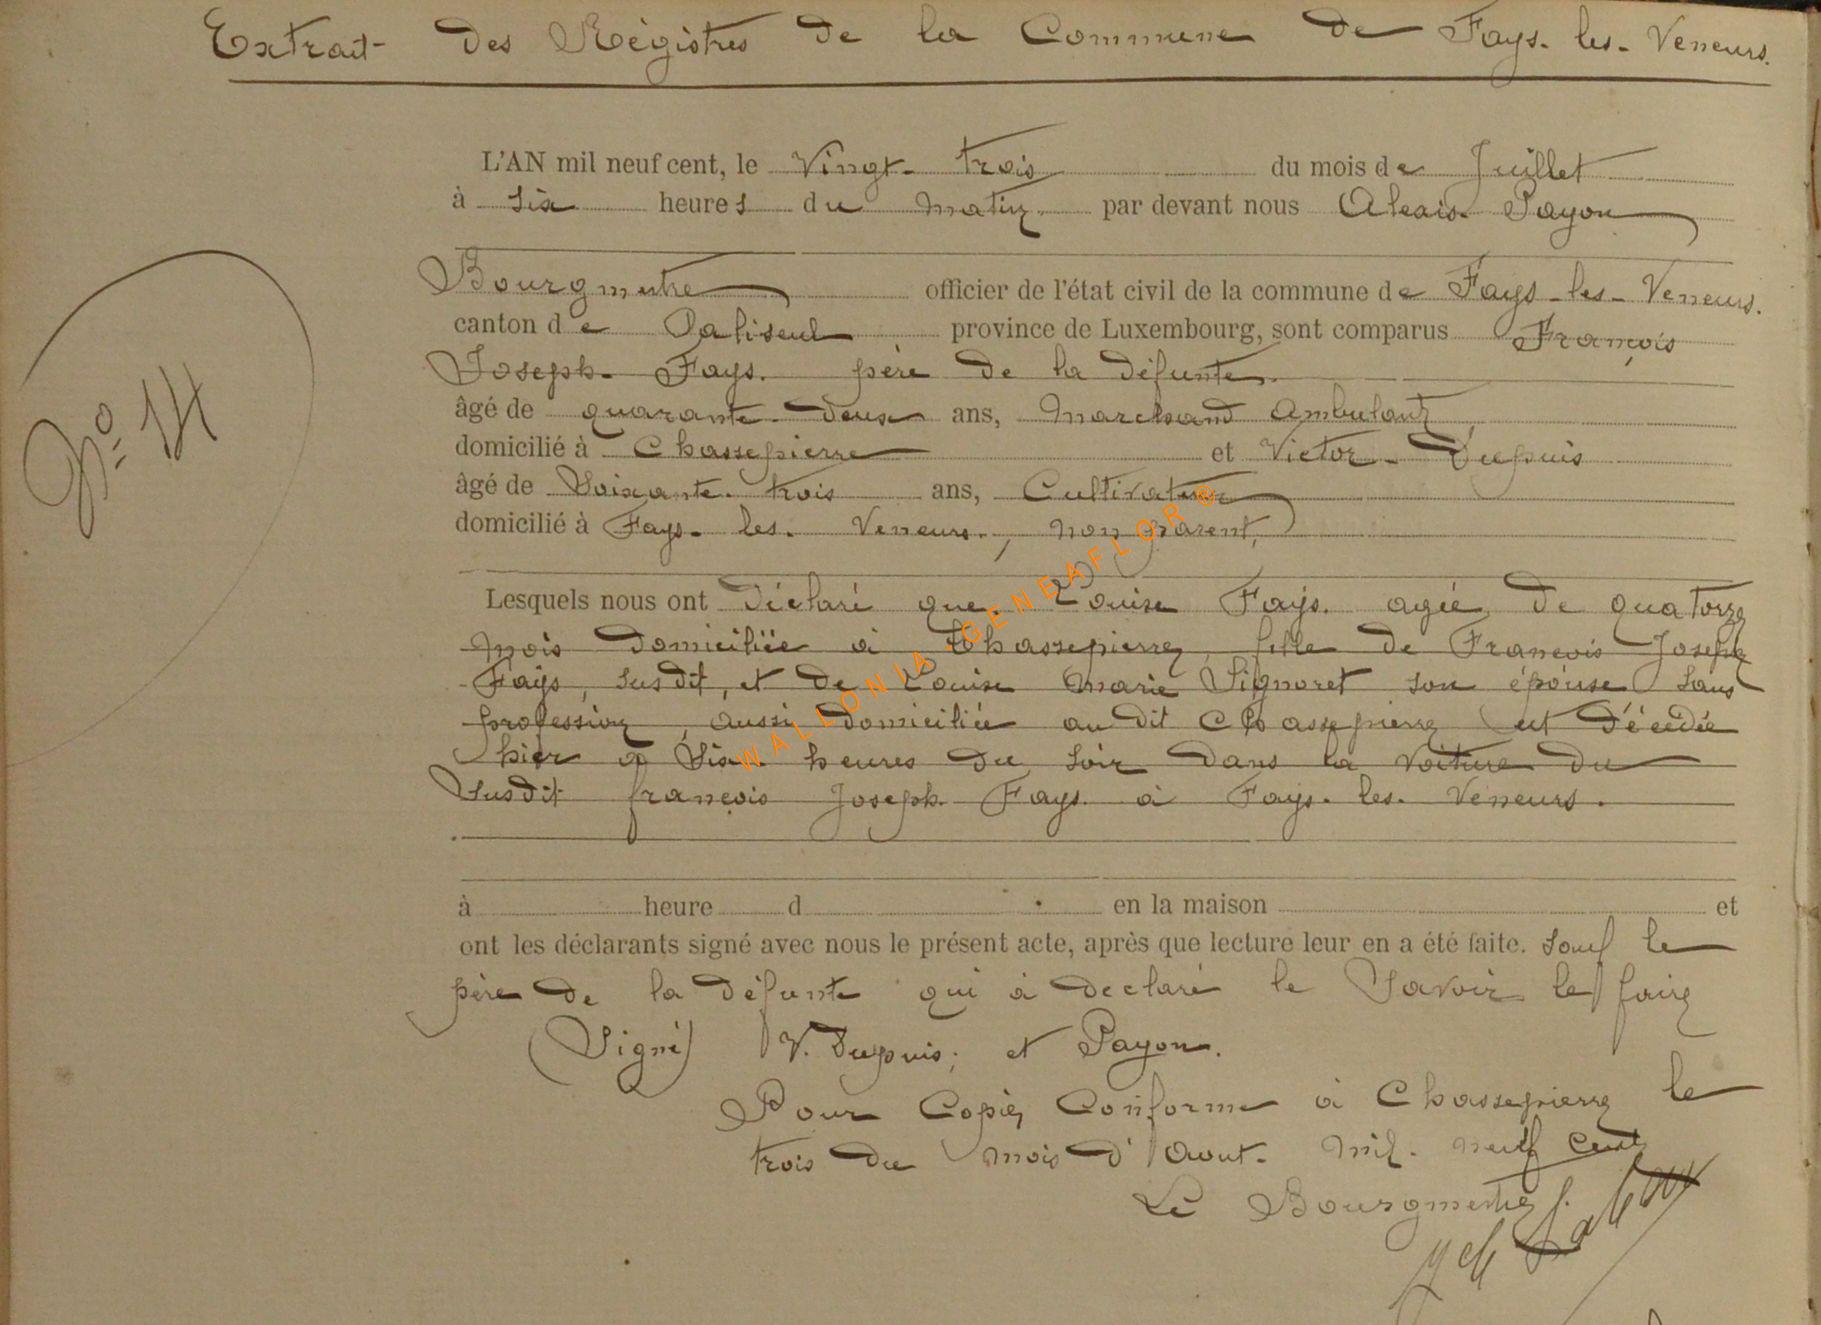 Extrait des Régistres de la Commune de Fays-les-Veneurs.
L'AN mil neuf cent, le Vingt-trois du mois de Juillet
à six heures du matin par devant nous Alexis Payon
Bourgmestre officier de l'état civil de la commune de Fays-les-Veneurs.
canton de Paliseul province de Luxembourg, sont comparus François
Joseph Fays. père de la défunte.
âgé de quarante-deux ans, Marchand Ambulant,
domicilié à Chassepierre et Victor Dupuis
âgé de Soixante-trois ans, Cultivateur
domicilié à Fays-les-Veneurs, non parent,
Nº 14
Lesquels nous ont déclaré que Louise Fays. agée de quatorze
mois domiciliée à Chassepierre, fille de François Joseph
Fays, susdit, et de Louise Marie Signoret son épouse sans
profession, aussi domiciliée au dit Chassepierre est décédée
hier à Six heures du soir dans la voiture du
Susdit françois Joseph Fays à Fays-les-Veneurs.
à heure d en la maison et
ont les déclarants signé avec nous le présent acte, après que lecture leur en a été faite. sauf le
père de la défunte qui à declaré le Savoir le faire
(Signé) V. Dupuis, et Payon.
Pour Copie Conforme à Chassepierre le
trois du mois d'Aout mil neuf cent
Le Bourgmestre
WALLONIA - GENEAFLORE